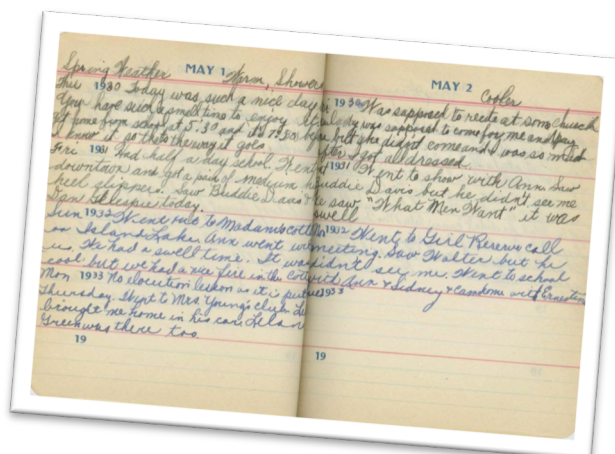 MAY 1
Spring Weather Warm, Showers
1930 Today was such a nice day
have such time to enjoy it
home from school at 5:30 and it's 7:30
I know it so thats the way it goes
Fri 1931 Had half a day school. Went
downtown and got a pair of medium
heel slippers. Saw Buddie Davis &
Dan Gillespie today.
Sun 1932 Went out to Madam's cottage
on Island Lake. Ann went with
us. We had a swell time. It was
cool but we had a nice fire in the
Mon 1933 No elocution lesson as it is
Thursday. Went to Mrs. Young's club.
brought me home in his car.
Green was there too.
19
MAY 2
Cooler
1930 Was supposed to recite at some church
lady was supposed to come for me and
but she didn't come and I was so mad
after I got all dressed.
1931 Went to show with Ann. Saw
Buddie Davis but he didn't see me
We saw "What Men Want" it was
swell
1932 Went to Girl Reserve call
meeting. Saw Walter but he
didn't see me. Went to school
with Ann & Sidney & came home with Ernestine
1933
19